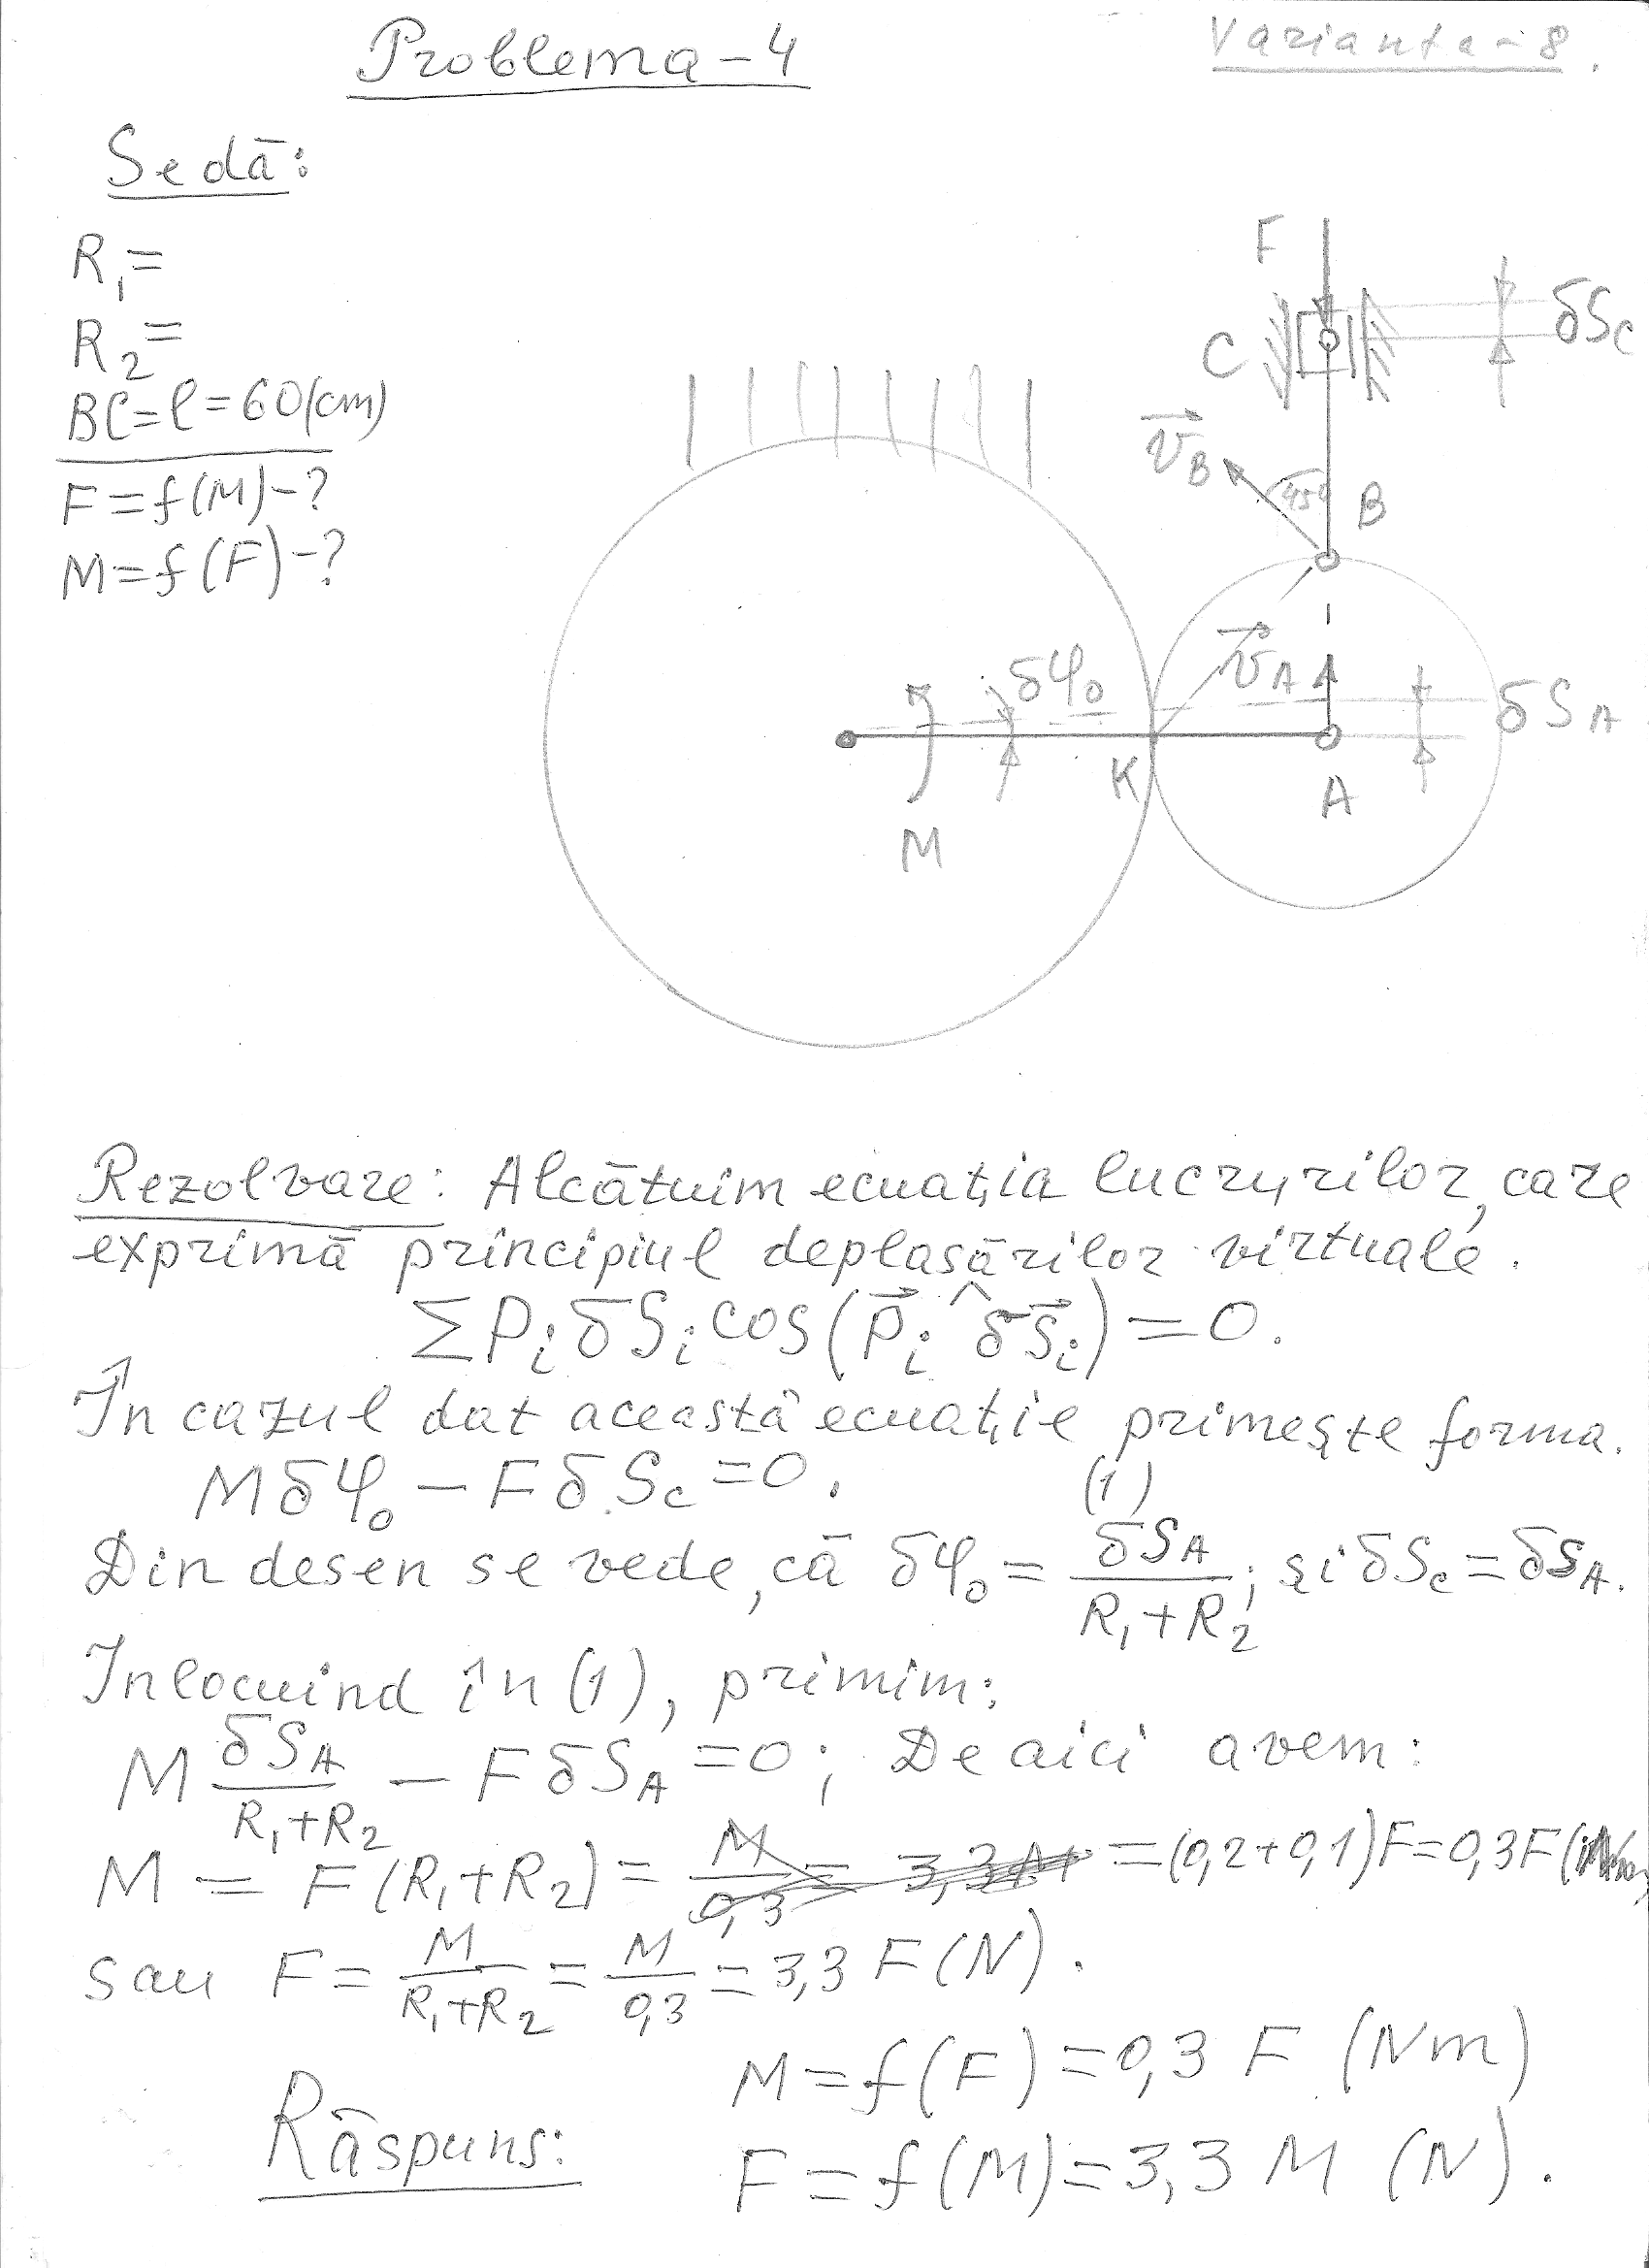 Problema-4
Varianta-8.
Se dă:
R₁=
R₂=
BC=l=60(cm)
F=f(M)-?
M=f(F)-?
F
C
δSc
v⃗B
45°
B
δφ₀
v⃗A
δSA
K
A
M
Rezolvare: Alcătuim ecuația lucrurilor, care
exprimă principiul deplasărilor virtuale.
ΣPᵢδSᵢcos(P⃗ᵢ^δS⃗ᵢ)=0.
În cazul dat această ecuație primește forma.
Mδφ₀-FδSc=0. (1)
Din desen se vede, că δφ₀=δSA/(R₁+R₂); și δSc=δSA.
Inlocuind în (1), primim:
M δSA/(R₁+R₂) - FδSA=0; De aici avem:
M = F(R₁+R₂)= =(0,2+0,1)F=0,3F
sau F=M/(R₁+R₂)=M/0,3=3,3 F(N).
M=f(F)=0,3 F (Nm)
Răspuns:
F=f(M)=3,3 M (N).